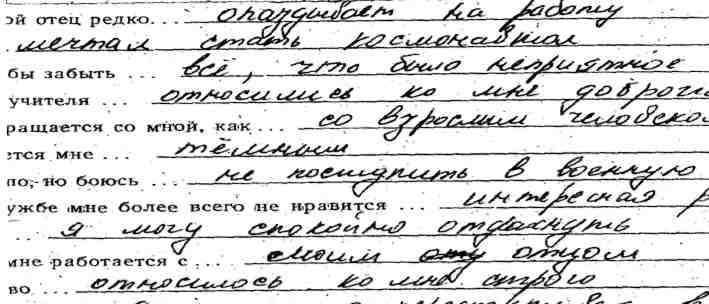 ой отец редко... опаздывает на работу
мечтал стать космонавтом
бы забыть ... всё, что было неприятное
учителя ... относились ко мне доброж
ращается со мной, как ... со взрослым человеко
ется мне ... тёмным
по, но боюсь ... не поступить в военную
ужбе мне более всего не нравится ... интересная р
... я могу спокойно отдохнуть
мне работается с ... своим отцом
во ... относилось ко мне строго